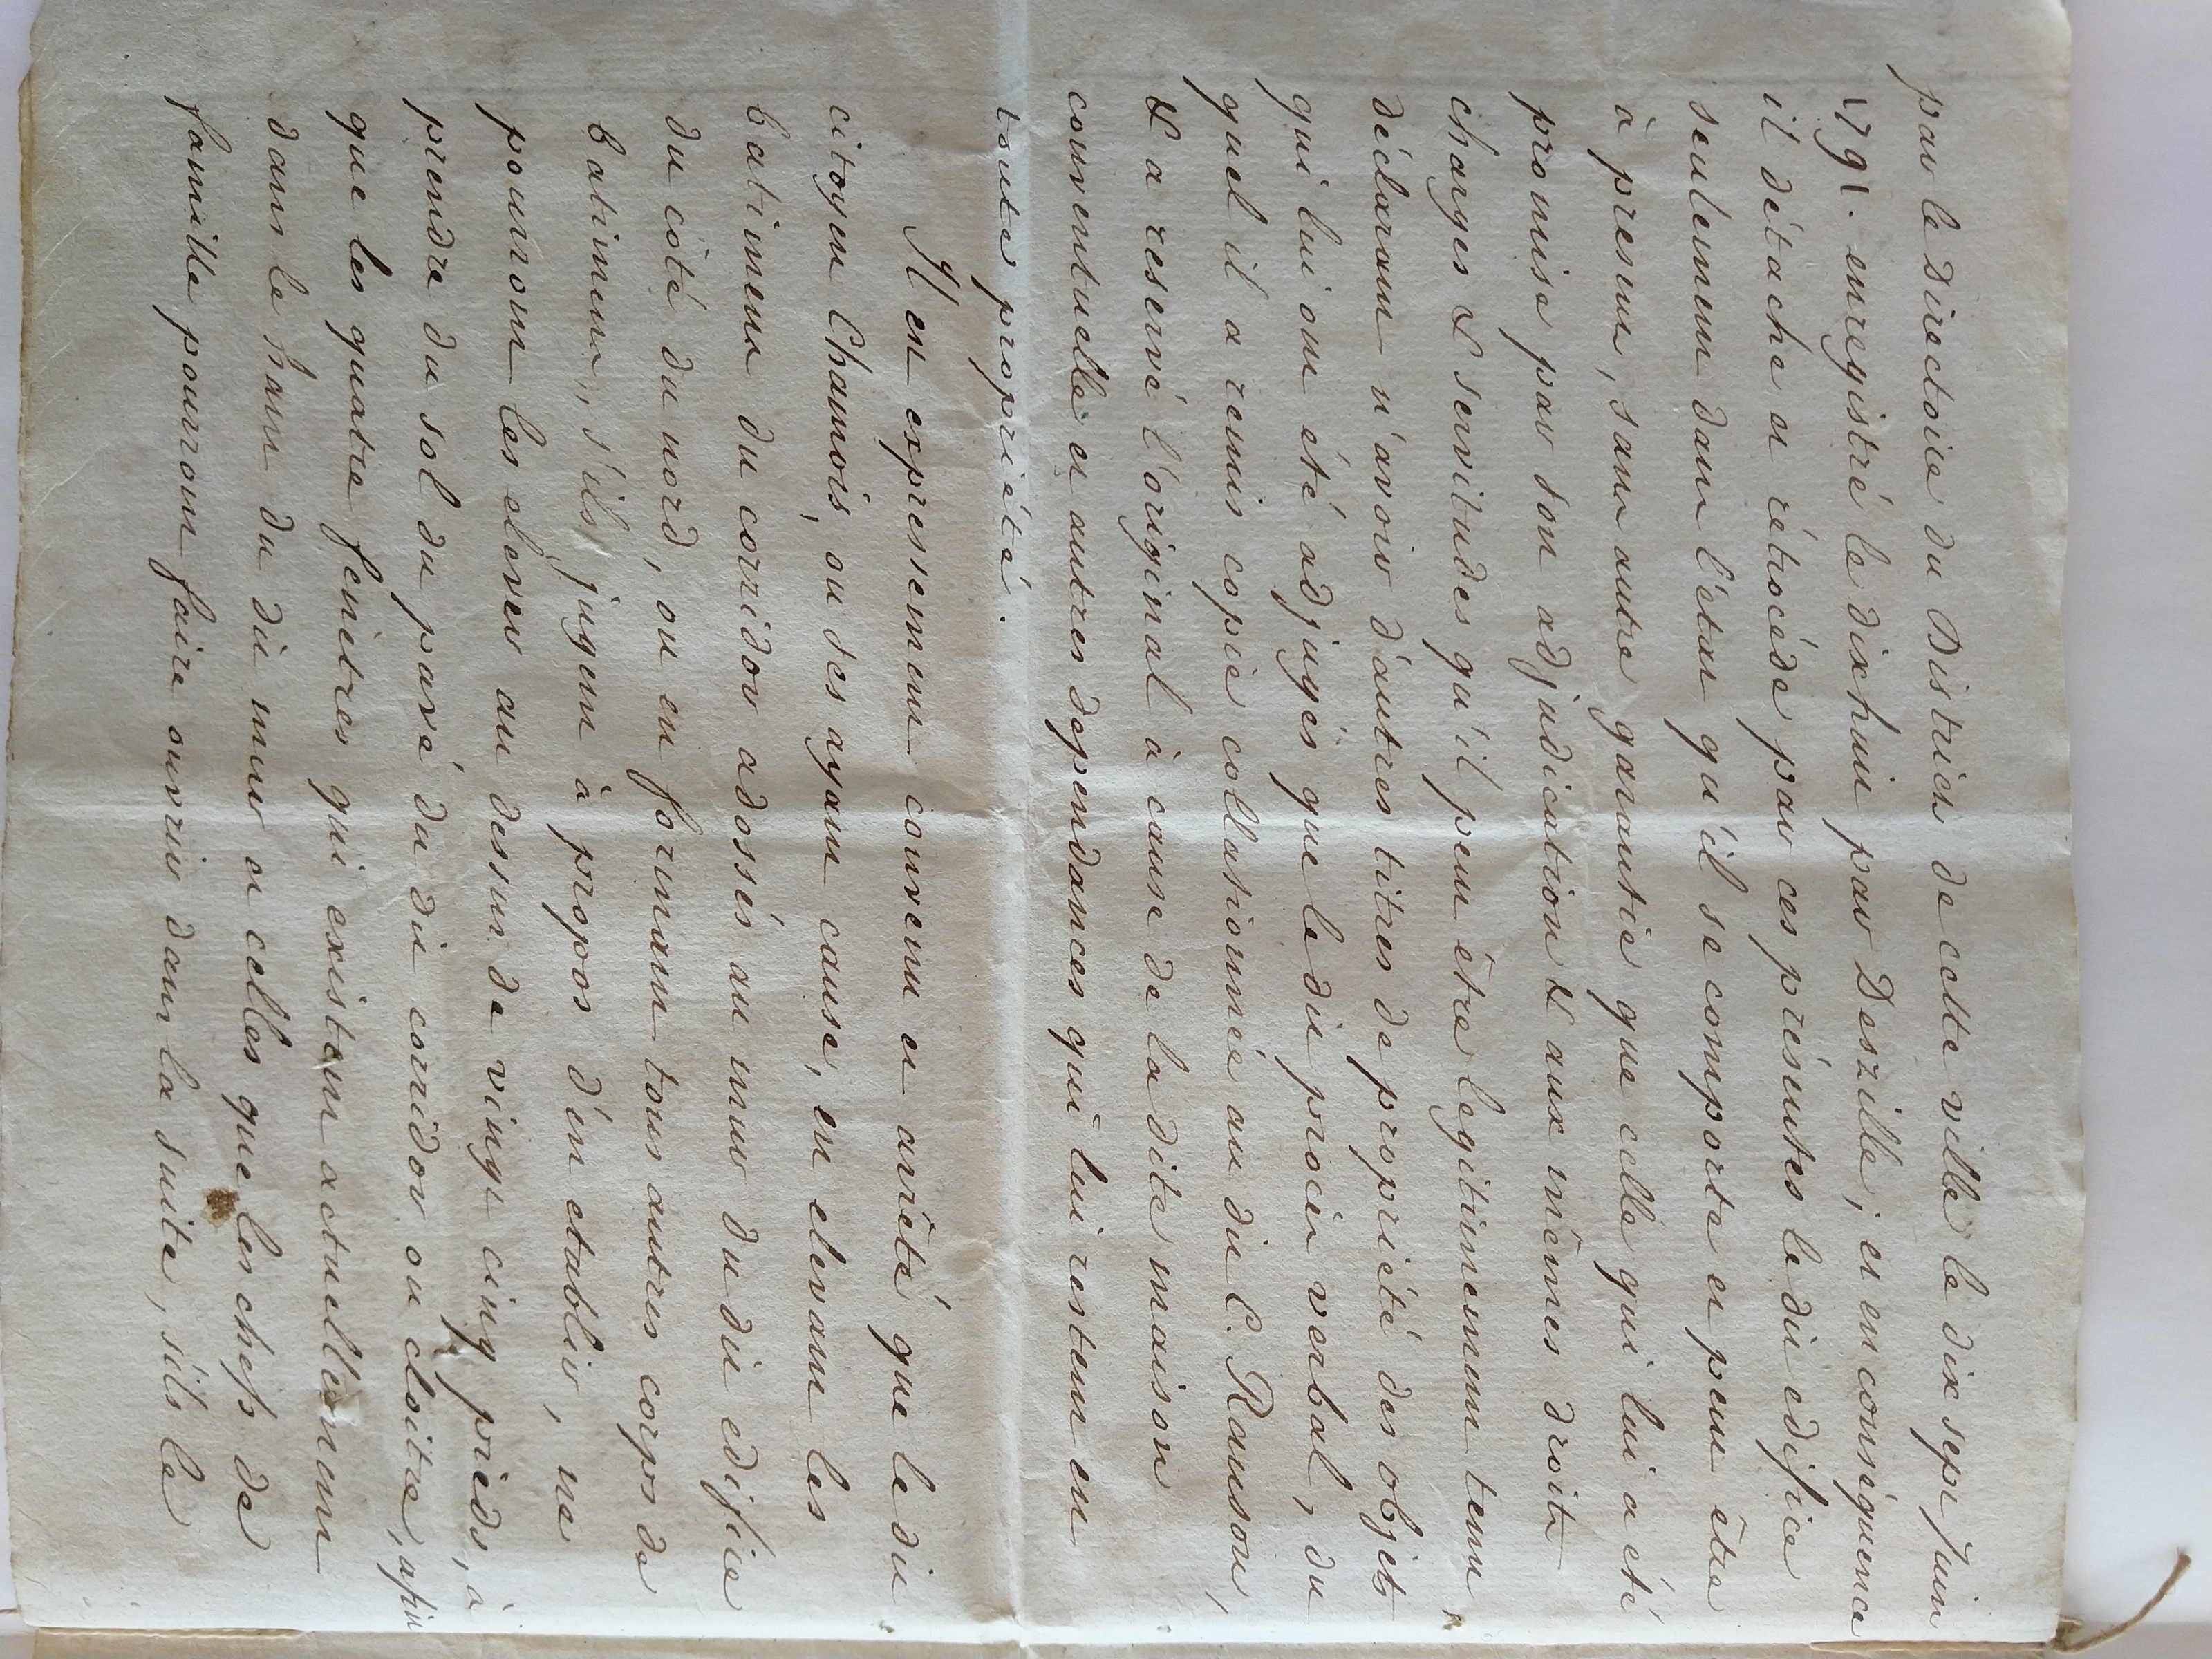 par le Directoire du District de cette ville le dix sept Juin
1791. enregistré le dixhuit par Deszille; et en conséquence
il détache et rétrocède par ces présentes le dit edifice
seulement dans l'état qu'il se comporte et peut être
à present, sans autre garantie que celle qui lui a été
promise par son adjudication & aux mêmes droits
charges & servitudes qu'il peut être legitimement tenu,
déclarant n'avoir d'autres titres de propriété des objets
qui lui ont été adjugés que le dit procès verbal, du
quel il a remis copie collationnée au dit C. Ranson,
& a reservé l'original à cause de la dite maison
conventuelle et autres dependances qui lui restent en
toute propriété.
Il est expressement convenu et arrêté que le dit
citoyen Chamois, ou ses ayant cause, en elevant les
batimens du corridor adossés au mur du dit edifice
du côté du nord, ou en formant tous autres corps de
batimens, s'ils jugent à propos d'en etablir, ne
pourront les elever au dessus de vingt cinq pieds, à
prendre du sol du pavé du dit corridor ou cloitre, afin
que les quatre fenêtres qui existent actuellement
dans le haut du dit mur et celles que les chefs de
famille pourront faire ouvrir dans la suite, s'ils le